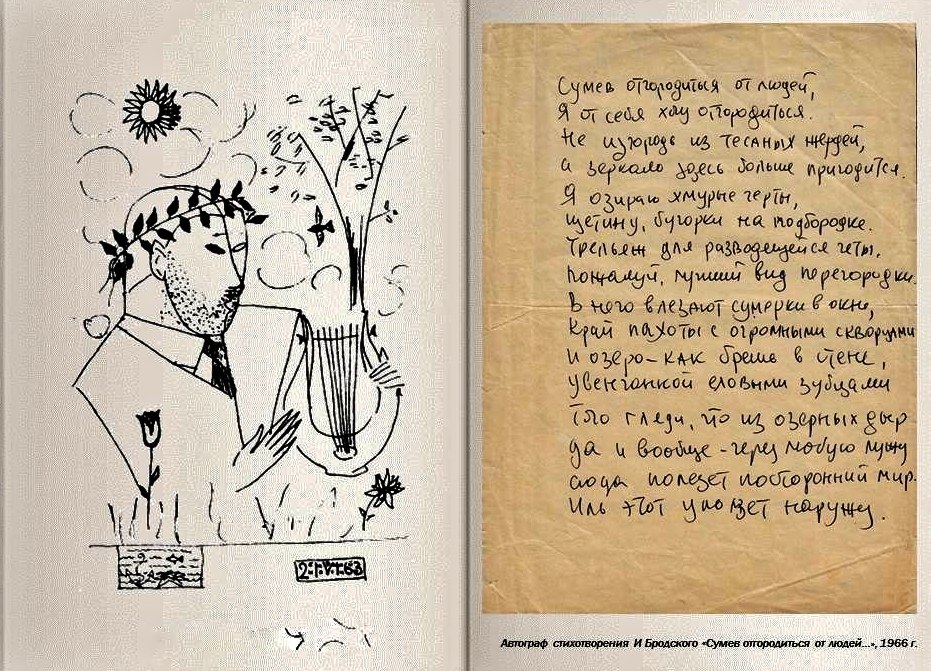 Сумев отгородиться от людей,
Я от себя хочу отгородиться.
Не изгородь из тесаных жердей,
а зеркало здесь больше пригодится.
Я озираю хмурые черты,
щетину, бугорки на подбородке.
Трельяж для разводящейся четы,
пожалуй, лучший вид перегородки.
В него влезают сумерки в окне,
край пахоты с огромными скворцами
и озеро - как брешь в стене,
увенчанной еловыми зубцами
Того гляди, что из озерных дыр
да и вообще - через любую лужу
сюда полезет посторонний мир.
Иль этот уползет наружу.
Автограф стихотворения И Бродского «Сумев отгородиться от людей...», 1966 г.